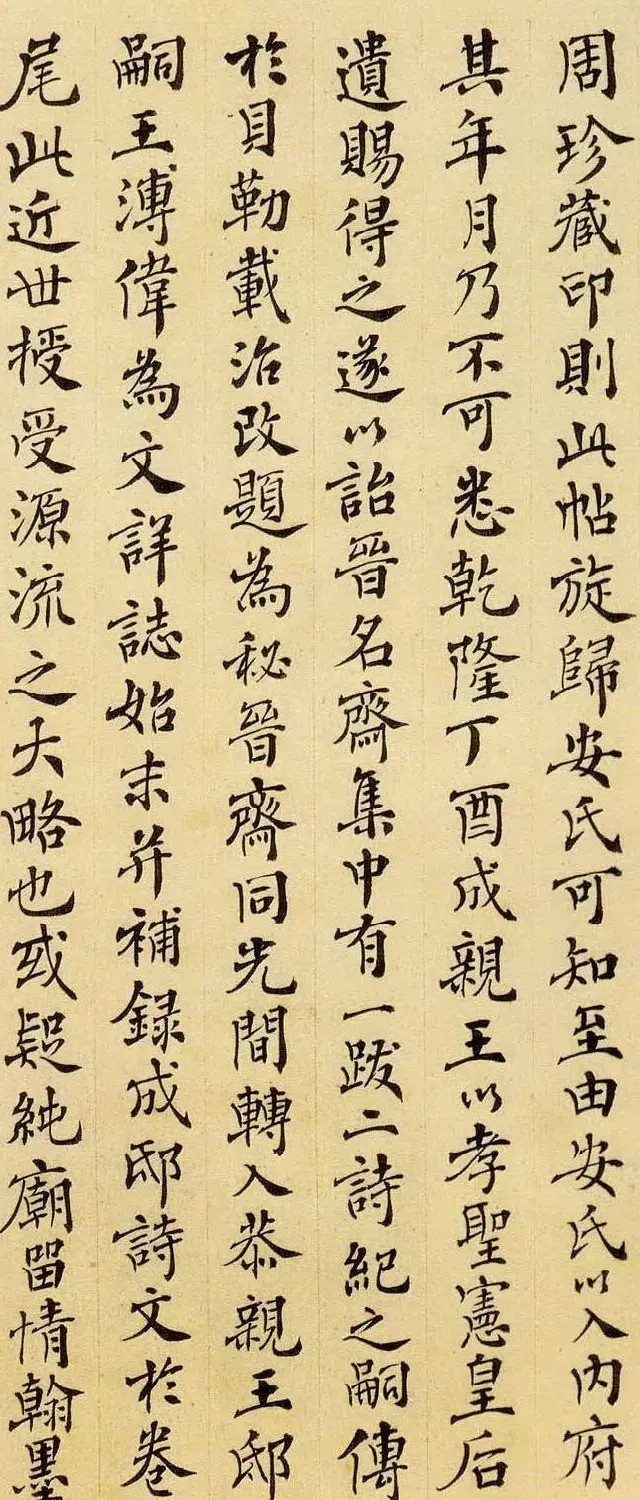 周珍藏印則此帖旋歸安氏可知至由安氏以入內府
其年月乃不可悉乾隆丁酉成親王以孝聖憲皇后
遺賜得之遂以詒晉名齋集中有一跋二詩紀之嗣傳
於貝勒載治改題為秘晉齋同光間轉入恭親王邸
嗣王溥偉為文詳誌始末并補錄成邸詩文於卷
尾此近世授受源流之大略也或疑純廟留情翰墨